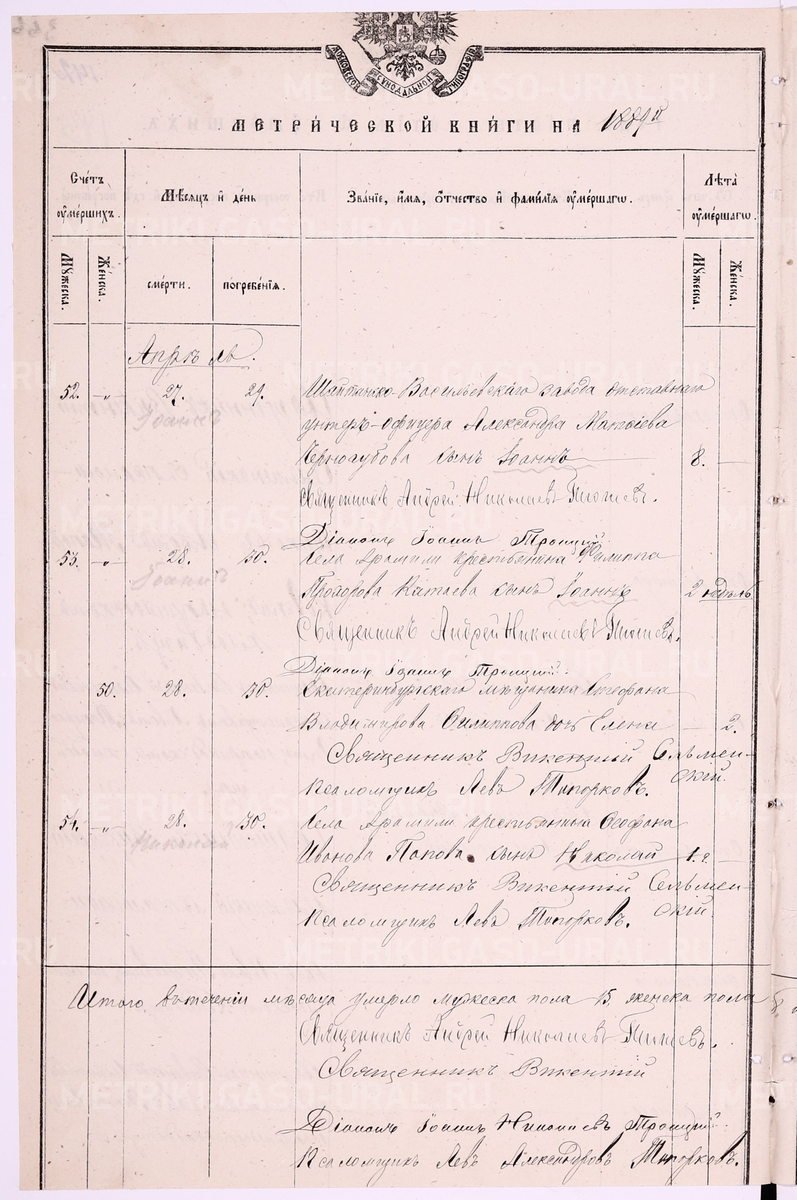 МОСКОВСКОЙ СѴНОДАЛЬНОЙ ТИПОГРАФІИ
МЕТРИ́ЧЕСКОЙ КНИ́ГИ НА 1889й
Сче́тъ ᲂу҆ме́ршихъ.
Мѣ́сяцъ и҆ де́нь
Зва́нїе, и҆́мя, ѻ҆́тчество и҆ фами́лїя ᲂу҆ме́ршагѡ.
Лѣ́та ᲂу҆ме́ршагѡ.
Мꙋ́жеска. Же́нска. сме́рти. погребе́нїя. Мꙋ́жеска. Же́нска.
Апрѣль.
52. –„– 27. 29. Шайтанко-Васильевскаго завода отставнаго
унтеръ-офицера Александра Матѳіева
Черногубова сынъ Іоаннъ 8. –
Священникъ Андрей Николаевъ
Діаконъ Іоаннъ Троицкій.
53. –„– 28. 30. Села Арамили крестьянина Филиппа
Прохорова Катаева сынъ Іоаннъ 2 недѣль
Священникъ Андрей Николаевъ
Діаконъ Іоаннъ Троицкій.
50. 28. 30. Екатеринбургскаго мѣщанина Стефана
Владимірова Филиппова дочь Елена – 2.
Священникъ Викентій Сельменскій.
Псаломщикъ Левъ Топорковъ.
54. –„– 28. 30. Села Арамили крестьянина Ѳеофана
Иванова Попова сынъ Николай 1 г. –
Священникъ Викентій Сельменскій.
Псаломщикъ Левъ Топорковъ.
Итого въ теченіи мѣсяца умерло мужеска пола 15, женска пола
Священникъ Андрей Николаевъ
Священникъ Викентій
Діаконъ Іоаннъ Николаевъ Троицкій.
Псаломщикъ Левъ Александровъ Топорковъ.
METRIKI.GASO-URAL.RU